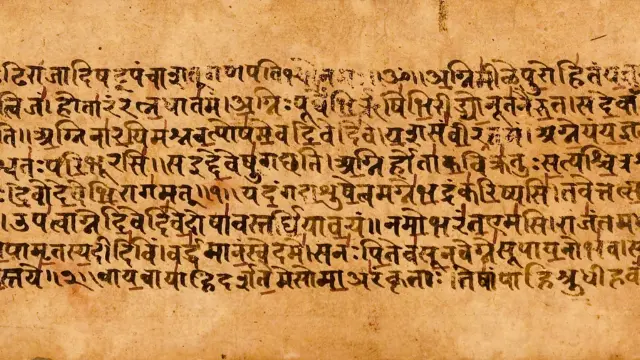 ॥ॐ॥अग्निमीळेपुरोहितंय
त्विजं।होतारंरत्नधातमं।अग्निःपूर्वेभिर्ऋषिभिरीड्योनूतनैरुत।सदेवाँ
ति॥अग्निनारयिमश्नवत्पोषमेवदिवेदिवे।यशसंवीरवत्तमं।अग्नेयंयज्ञ
श्वतःपरिभूरसि॥सइद्देवेषुगछति।अग्निर्होताकविक्रतुःसत्यश्चित्र
ः।देवोदेवेभिरागमत्॥१॥यदंगदाशुषेत्वमग्नेभद्रंकरिष्यसि।तवेत्तत्स
।उपत्वाग्नेदिवेदिवेदोषावस्तर्धियावयं॥नमोभरंतएमसि।राजंतम
पामृतस्यदीदिविं।वर्द्धमानंस्वेदमे।सनःपितेवसूनवेग्नेसूपायनोभव
स्तये॥२॥वायवायाहिदर्शतेमेसोमाअरंकृताः।तेषांपाहिश्रुधीहवं